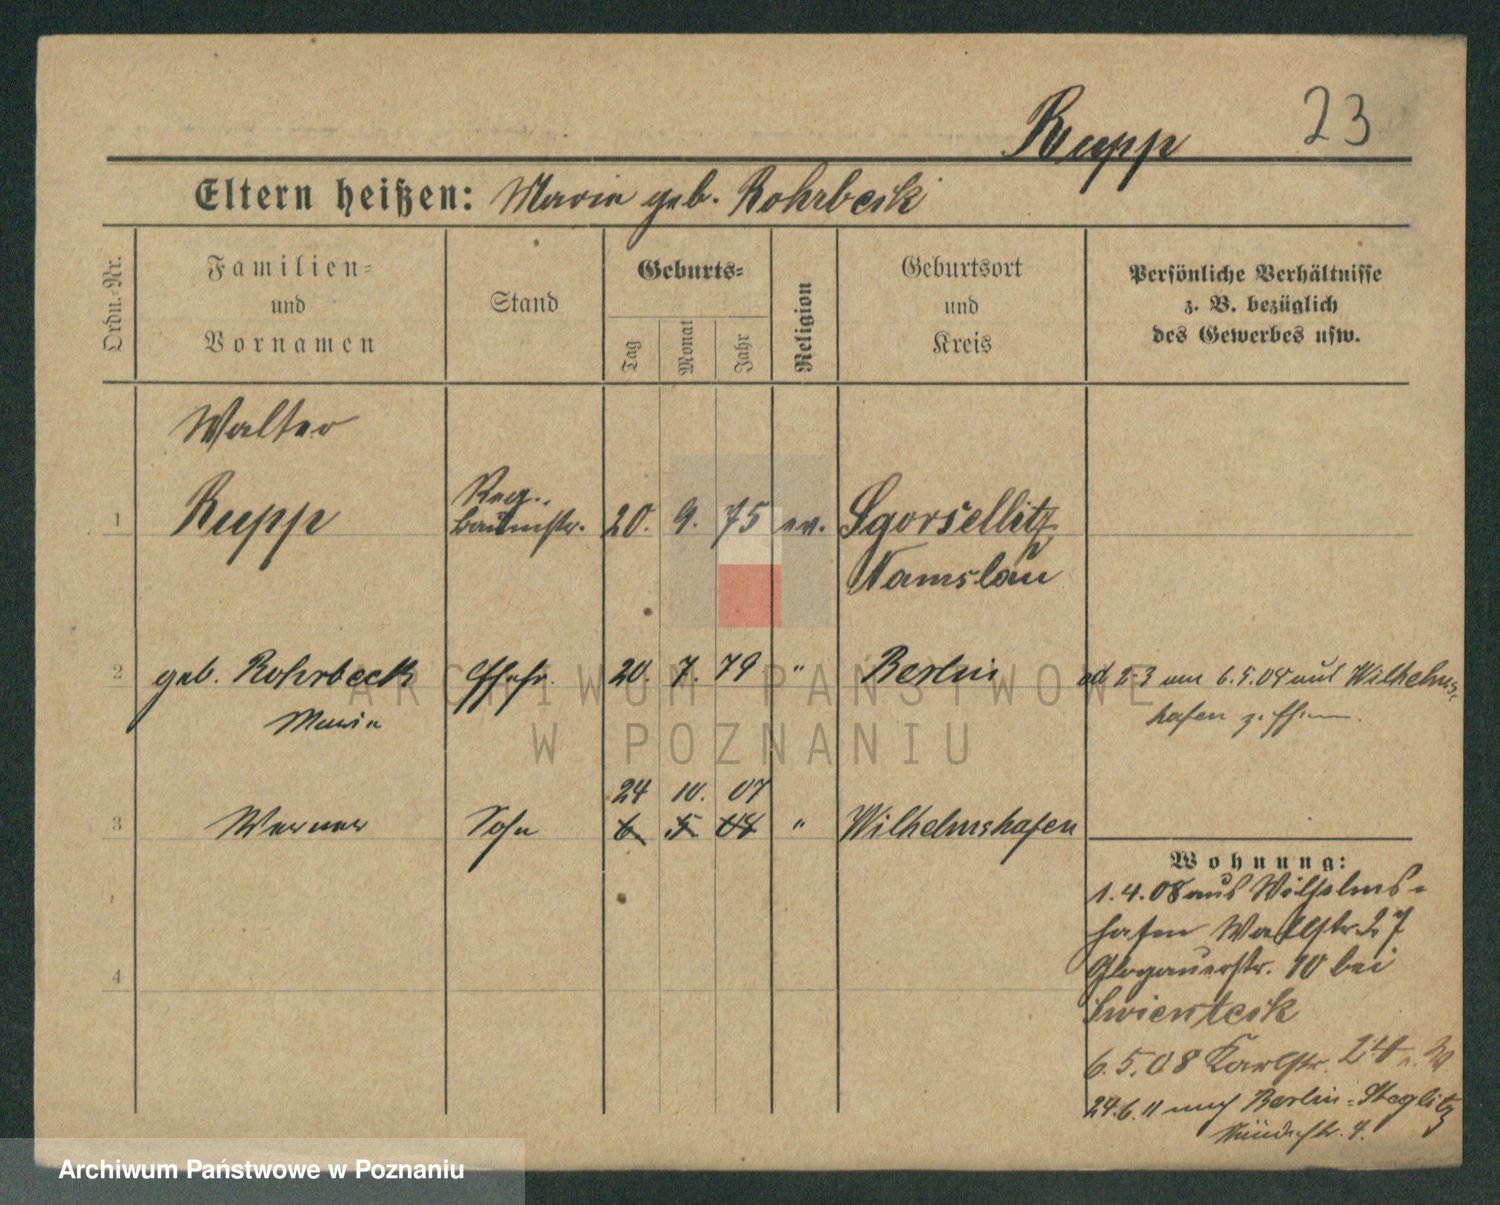 Rupp 23
Eltern heißen: Marie geb. Rohrbeck
Ordn.-Nr.
Familien-
und
Vornamen
Stand
Geburts-
Tag
Monat
Jahr
Religion
Geburtsort
und
Kreis
Persönliche Verhältnisse
z. B. bezüglich
des Gewerbes usw.
Walter
1 Rupp Reg. Baumstr. 20. 9. 75 ev. Sgorsellitz
Namslau
2 geb. Rohrbeck Ehefr. 20. 7. 79 " Berlin ad 2-3 am 6.5.08 aus Wilhelms-
Marie hafen
24 10. 07
3 Werner Sohn 6 5 08 " Wilhelmshafen
Wohnung:
1.4.08 aus Wilhelms-
hafen Wallstr. 27
4 Glogauerstr. 10 bei
Swienteck
6.5.08 Karlstr. 24
24.6.11 nach Berlin-Steglitz
ARCHIWUM PAŃSTWOWE
W POZNANIU
Archiwum Państwowe w Poznaniu